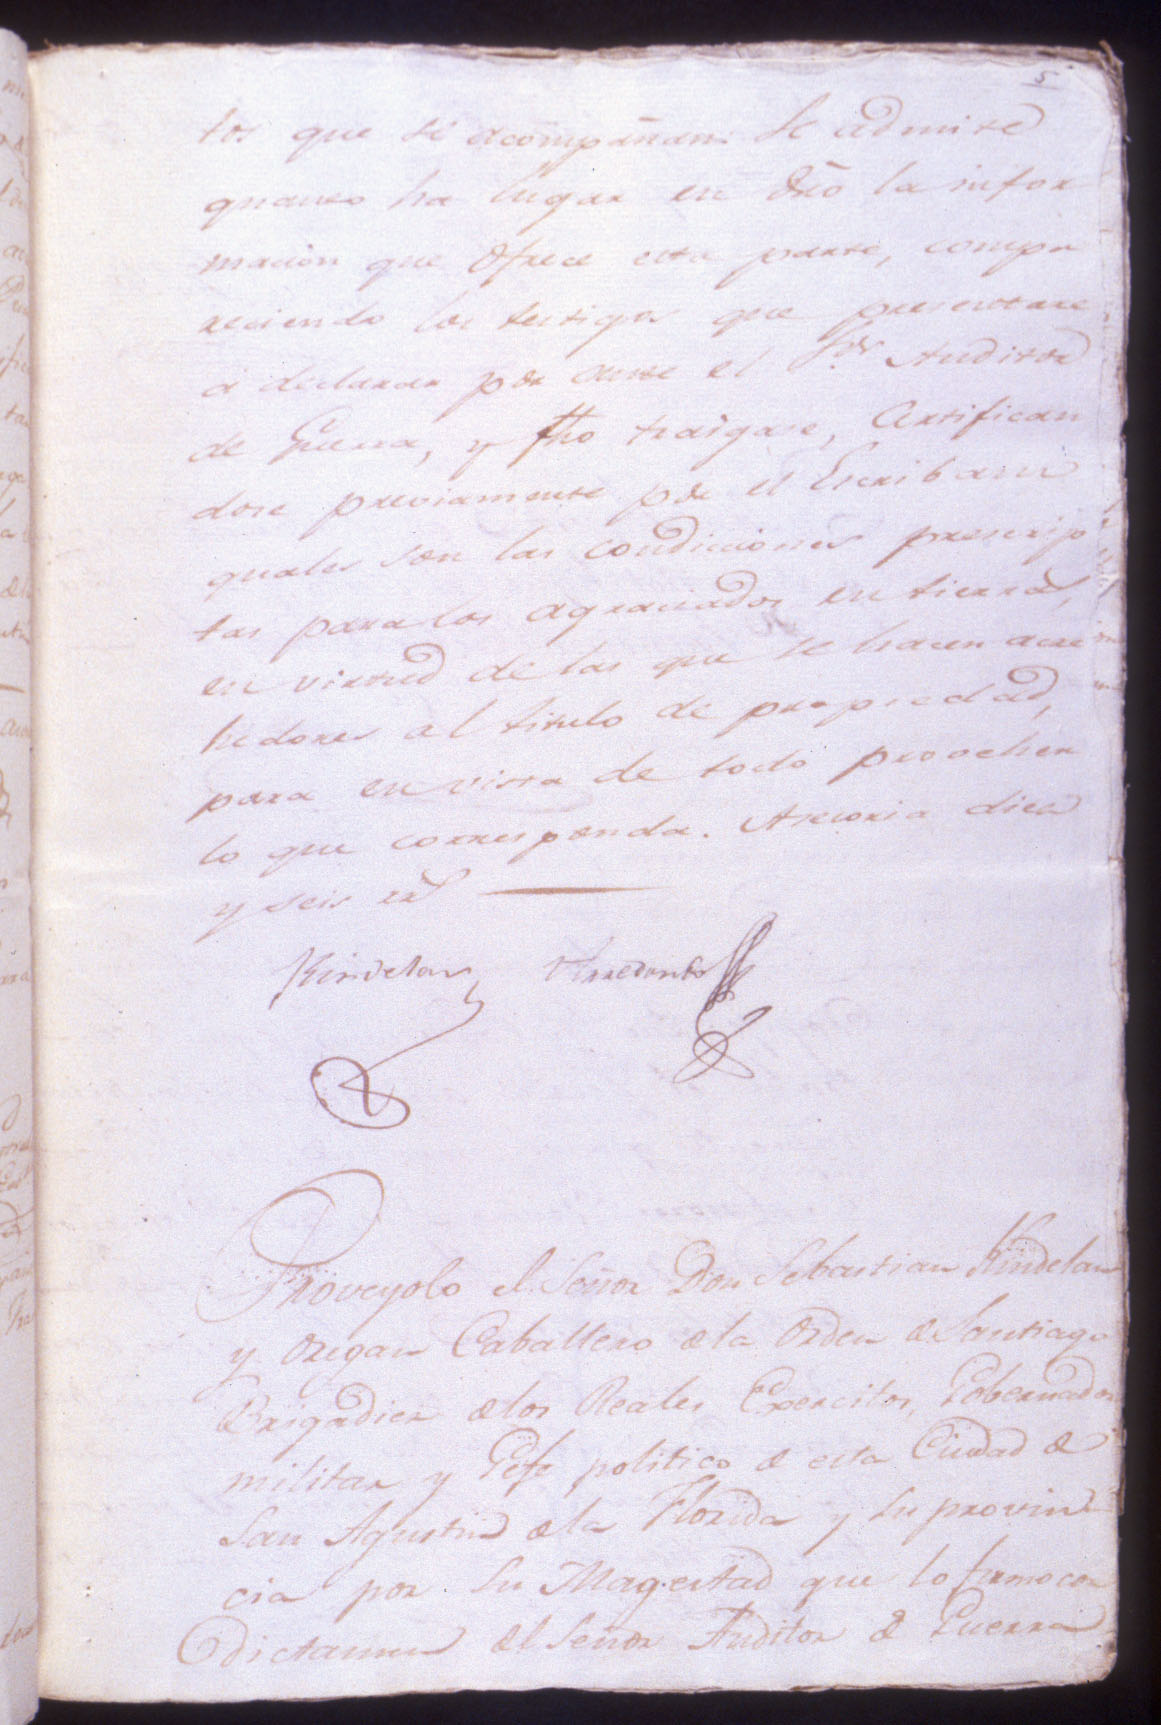 5
tos que se acompañan. Se admite
quanto ha lugar en dro̅ la infor
macion que ofrece esta parte, compa
reciendo los testigos que presentare
á declarar por ante el Sor. Auditor
de Guerra, y fho traigase, Certifican
dose previamente por el Escribano
quales son las condiciones prescrip
tas para los agraciados en tierras,
en virtud de las que se hacen acre
hedores al titulo de propiedad,
para en vista de todo proveher
lo que corresponda. Asesoria diez
y seis rs
Kindelan Arredondo
Proveyolo el Señor Don Sebastian Kindelan
y Oregan Caballero de la Orden de Santiago
Brigadier de los Reales Exercitos, Gobernador
militar y Gefe politico de esta Ciudad de
San Agustin de la Florida y su provin
cia por Su Magestad que lo firmo con
dictamen del Señor Auditor de Guerra